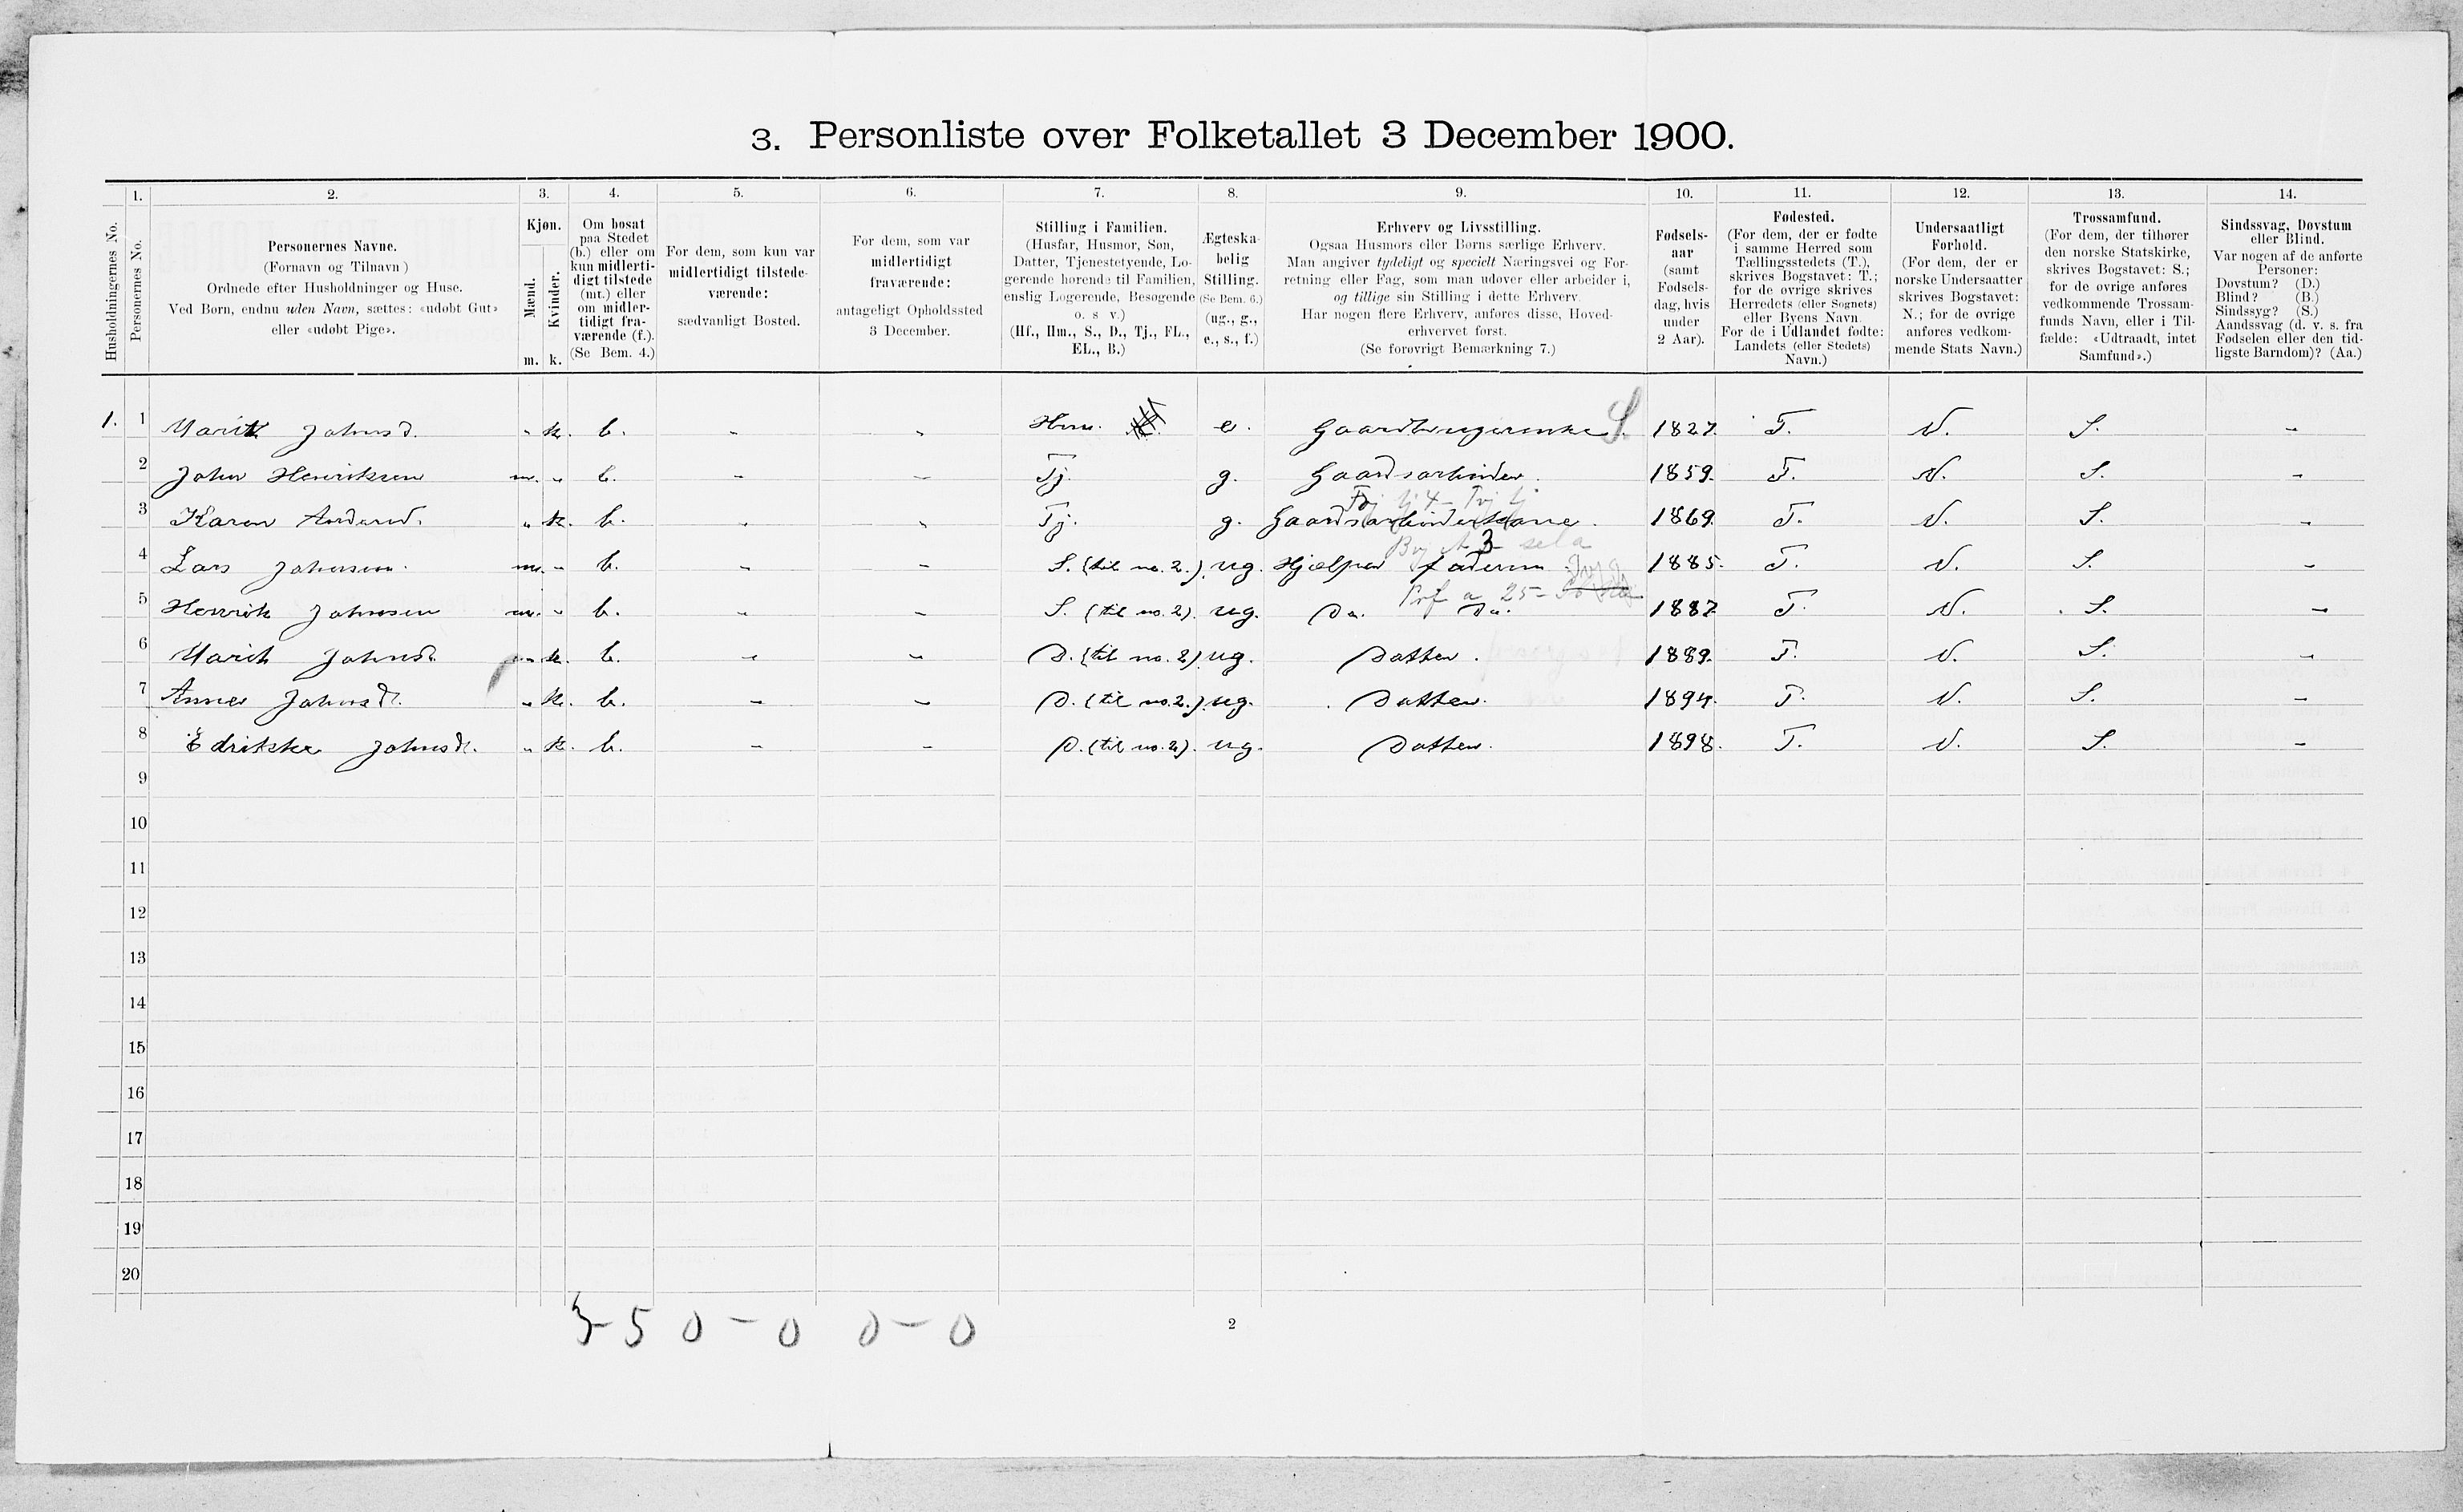 3. Personliste over Folketallet 3 December 1900.
1. 2. 3. 4. 5. 6. 7. 8. 9. 10. 11. 12. 13. 14.
Husholdningernes No.
Personernes No.
Personernes Navne.
(Fornavn og Tilnavn)
Ordnede efter Husholdninger og Huse.
Ved Børn, endnu uden Navn, sættes: «udøbt Gut»
eller «udøbt Pige».
Kjøn.
Mænd.
Kvinder.
m. k.
Om bosat
paa Stedet
(b.) eller om
kun midlerti-
digt tilstede
(mt.) eller
om midler-
tidigt fra-
værende (f.).
(Se Bem. 4.)
For dem, som kun var
midlertidigt tilstede-
værende:
sædvanligt Bosted.
For dem, som var
midlertidigt
fraværende:
antageligt Opholdssted
3 December.
Stilling i Familien.
(Husfar, Husmor, Søn,
Datter, Tjenestetyende, Lo-
gerende hørende til Familien,
enslig Logerende, Besøgende
o. s v.)
(Hf., Hm., S., D., Tj., FL.,
EL., B.)
Ægteska-
belig
Stilling.
(Se Bem. 6.)
(ug., g.,
e., s., f.)
Erhverv og Livsstilling.
Ogsaa Husmors eller Børns særlige Erhverv.
Man angiver tydeligt og specielt Næringsvei og For-
retning eller Fag, som man udøver eller arbeider i,
og tillige sin Stilling i dette Erhverv.
Har nogen flere Erhverv, anføres disse, Hoved-
erhvervet først.
(Se forøvrigt Bemærkning 7.)
Fødsels-
aar
(samt
Fødsels-
dag, hvis
under
2 Aar).
Fødested.
(For dem, der er fødte
i samme Herred som
Tællingsstedets (T.),
skrives Bogstavet: T.;
for de øvrige skrives
Herredets (eller Sognets)
eller Byens Navn.
For de i Udlandet fødte:
Landets (eller Stedets)
Navn.)
Undersaatligt
Forhold.
(For dem, der er
norske Undersaatter
skrives Bogstavet:
N.; for de øvrige
anføres vedkom-
mende Stats Navn.)
Trossamfund.
(For dem, der tilhører
den norske Statskirke,
skrives Bogstavet: S.;
for de øvrige anføres
vedkommende Trossam-
funds Navn, eller i Til-
fælde: «Udtraadt, intet
Samfund».)
Sindssvag, Døvstum
eller Blind.
Var nogen af de anførte
Personer:
Døvstum? (D.)
Blind? (B.)
Sindssyg? (S.)
Aandssvag (d. v. s. fra
Fødselen eller den tid-
ligste Barndom)? (Aa.)
1. 1 Marit Johnsd. " k. b. - - Hm. e. Gaardbrugerenke S. 1827. T. N. S. -
2 John Henriksen m. " b. - - Tj. g. Gaardsarbeider. 1859. T. N. S. -
3 Karen Andersd. " k. b. - - Tj. g. Gaardsarbeiderkone. 1869. T. N. S. -
4 Lars Johnsen. m. " b. - - S. (til no. 2.). ug. Hjælper faderen 1885. T. N. S. -
5 Henrik Johnsen m. " b. - - S. (til no. 2). ug. Do. Do. 1887 T. N. S. -
6 Marit Johnsd. " k. b. - - D. (til no. 2) ug. Datter. 1889. T. N. S. -
7 Anne Johnsdt. " k. b. - - D. (til no. 2.). ug. Datter. 1894. T. N. S. -
8 Edrikke Johnsdt. " k. b. - - D. (til no. 2). ug. Datter. 1898. T. N. S. -
9
10
11
12
13
14
15
16
17
18
19
20
3-5 0-0 0-0
2